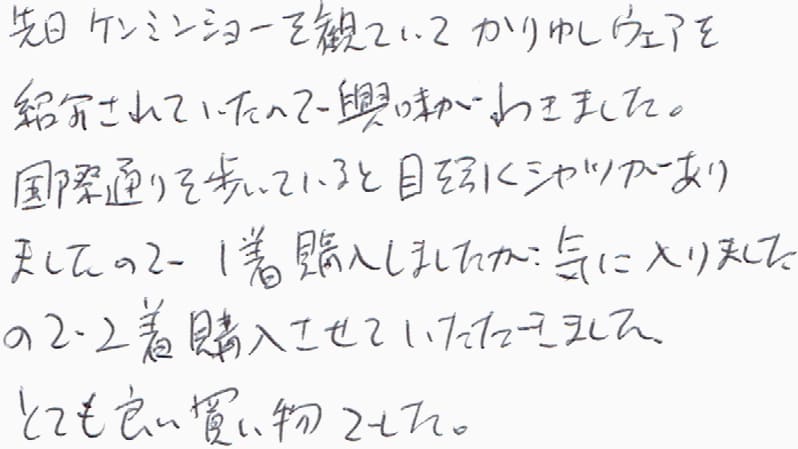 先日 ケンミンショーを観ていて かりゆしウェアを
紹介されていたので興味がわきました。
国際通りを歩いていると目を引くシャツがあり
ましたので1着購入しましたが気に入りました
ので2着購入させていただきました。
とても良い買い物でした。